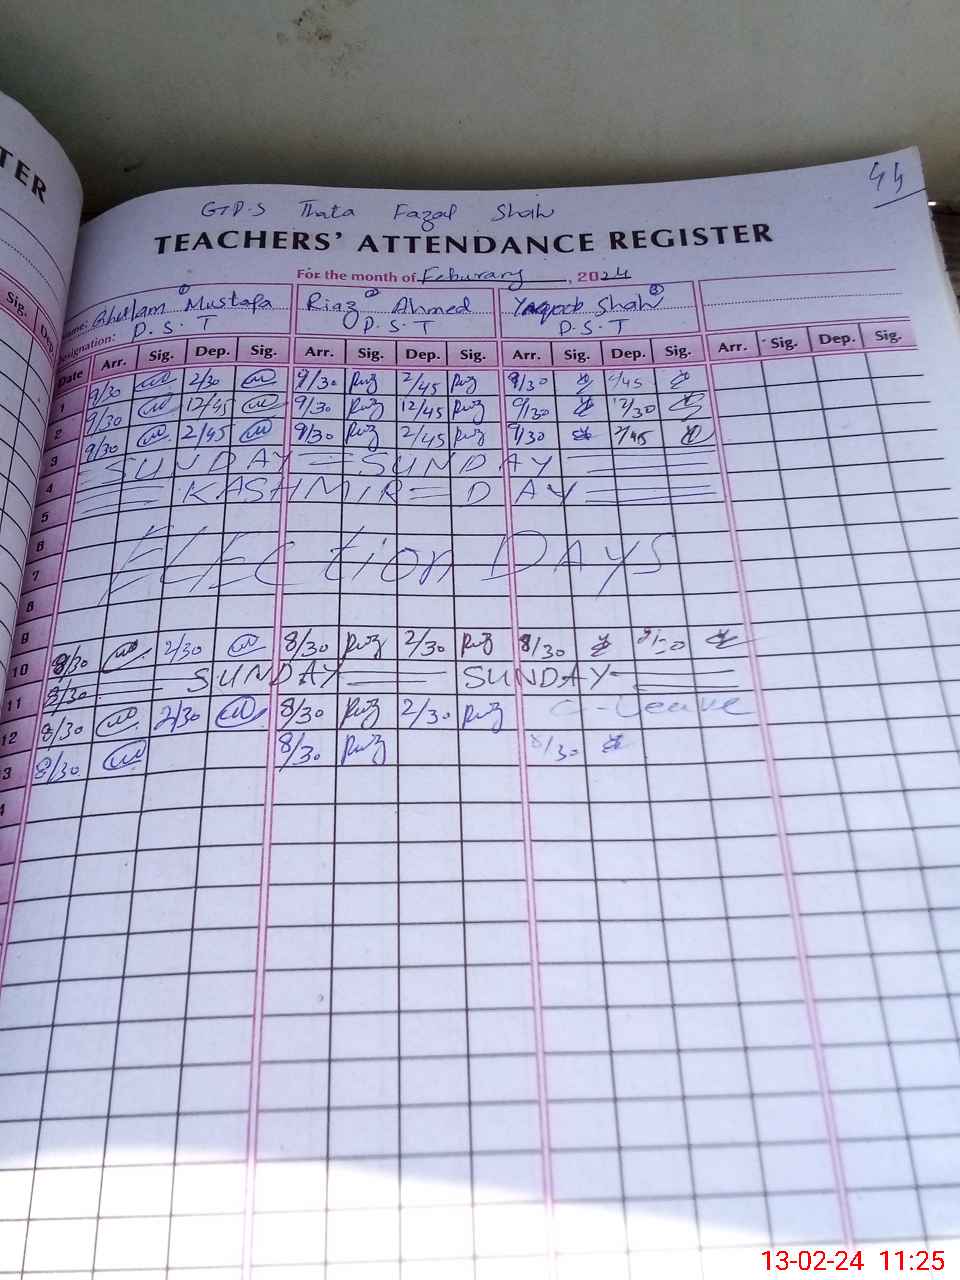 TER
44
GTPS Thata Fazal Shah
TEACHERS' ATTENDANCE REGISTER
For the month of Feburary, 2024
Name: Ghulam Mustafa ① Riaz Ahmed ② Yaqoob Shah ③
Designation: P.S.T P.S.T P.S.T
Sig. Dep.
Date Arr. Sig. Dep. Sig. Arr. Sig. Dep. Sig. Arr. Sig. Dep. Sig. Arr. Sig. Dep. Sig.
1 9/30 2/30 9/30 Riaz 2/45 Riaz 9/30 2/45
2 9/30 12/45 9/30 Riaz 12/45 Riaz 9/30 12/30
3 9/30 2/45 9/30 Riaz 2/45 Riaz 9/30 2/45
4 SUNDAY = SUNDAY
5 KASHMIR = DAY
6
7 ELECtion DAYS
8
9
10 8/30 2/30 8/30 Riaz 2/30 Riaz 8/30
11 8/30 SUNDAY SUNDAY
12 8/30 2/30 8/30 Riaz 2/30 Riaz C-Leave
13 8/30 8/30 Riaz 8/30
13-02-24 11:25